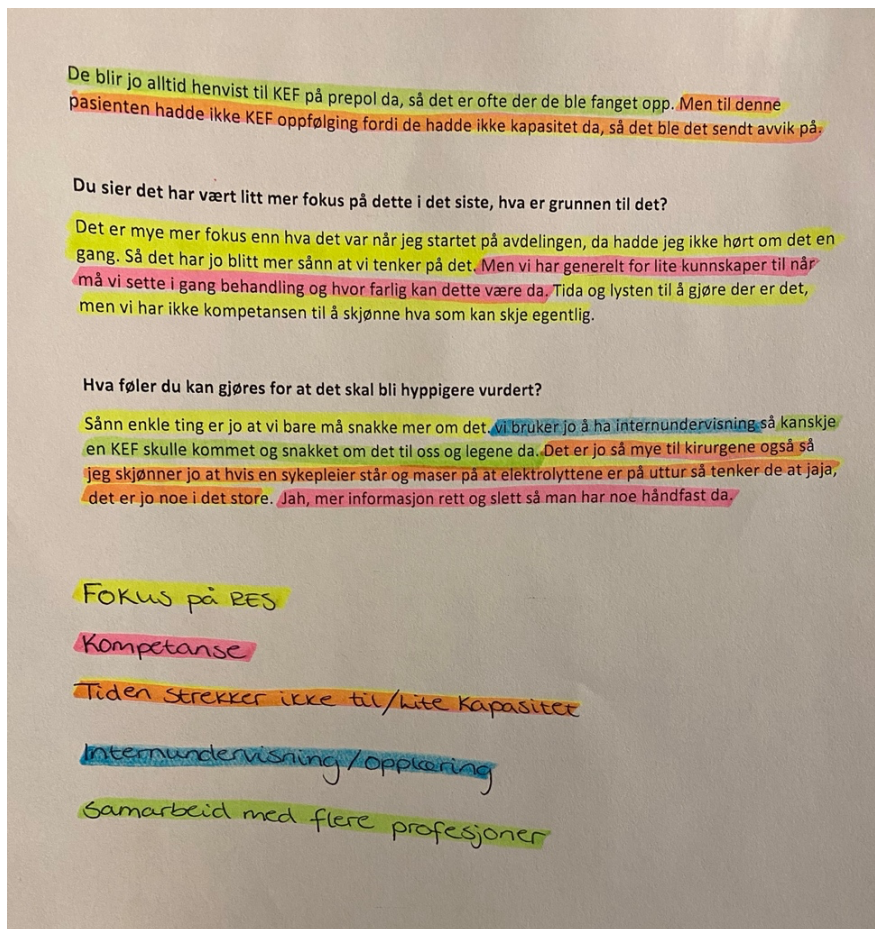 De blir jo alltid henvist til KEF på prepol da, så det er ofte der de ble fanget opp. Men til denne
pasienten hadde ikke KEF oppfølging fordi de hadde ikke kapasitet da, så det ble det sendt avvik på.
Du sier det har vært litt mer fokus på dette i det siste, hva er grunnen til det?
Det er mye mer fokus enn hva det var når jeg startet på avdelingen, da hadde jeg ikke hørt om det en
gang. Så det har jo blitt mer sånn at vi tenker på det. Men vi har generelt for lite kunnskaper til når
må vi sette i gang behandling og hvor farlig kan dette være da. Tida og lysten til å gjøre der er det,
men vi har ikke kompetansen til å skjønne hva som kan skje egentlig.
Hva føler du kan gjøres for at det skal bli hyppigere vurdert?
Sånn enkle ting er jo at vi bare må snakke mer om det. vi bruker jo å ha internundervisning så kanskje
en KEF skulle kommet og snakket om det til oss og legene da. Det er jo så mye til kirurgene også så
jeg skjønner jo at hvis en sykepleier står og maser på at elektrolyttene er på uttur så tenker de at jaja,
det er jo noe i det store. Jah, mer informasjon rett og slett så man har noe håndfast da.
Fokus på RES
Kompetanse
Tiden strekker ikke til/Lite Kapasitet
Internundervisning/opplæring
Samarbeid med flere profesjoner